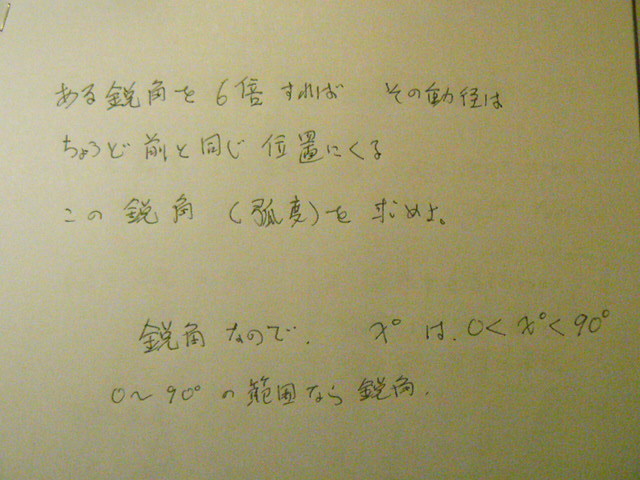 ある鋭角を 6倍すれば その動径は
ちょうど 前と同じ 位置にくる
この 鋭角 (弧度)を 求めよ。
鋭角なので. x° は. 0<x°<90°
0〜90° の範囲なら鋭角.